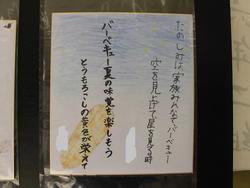 たのしみは、家族みんなでバーベキュー
空を見上げて星を見る時
バーベキュー夏の味覚を楽しもう
とうもろこしの黄色が栄えて